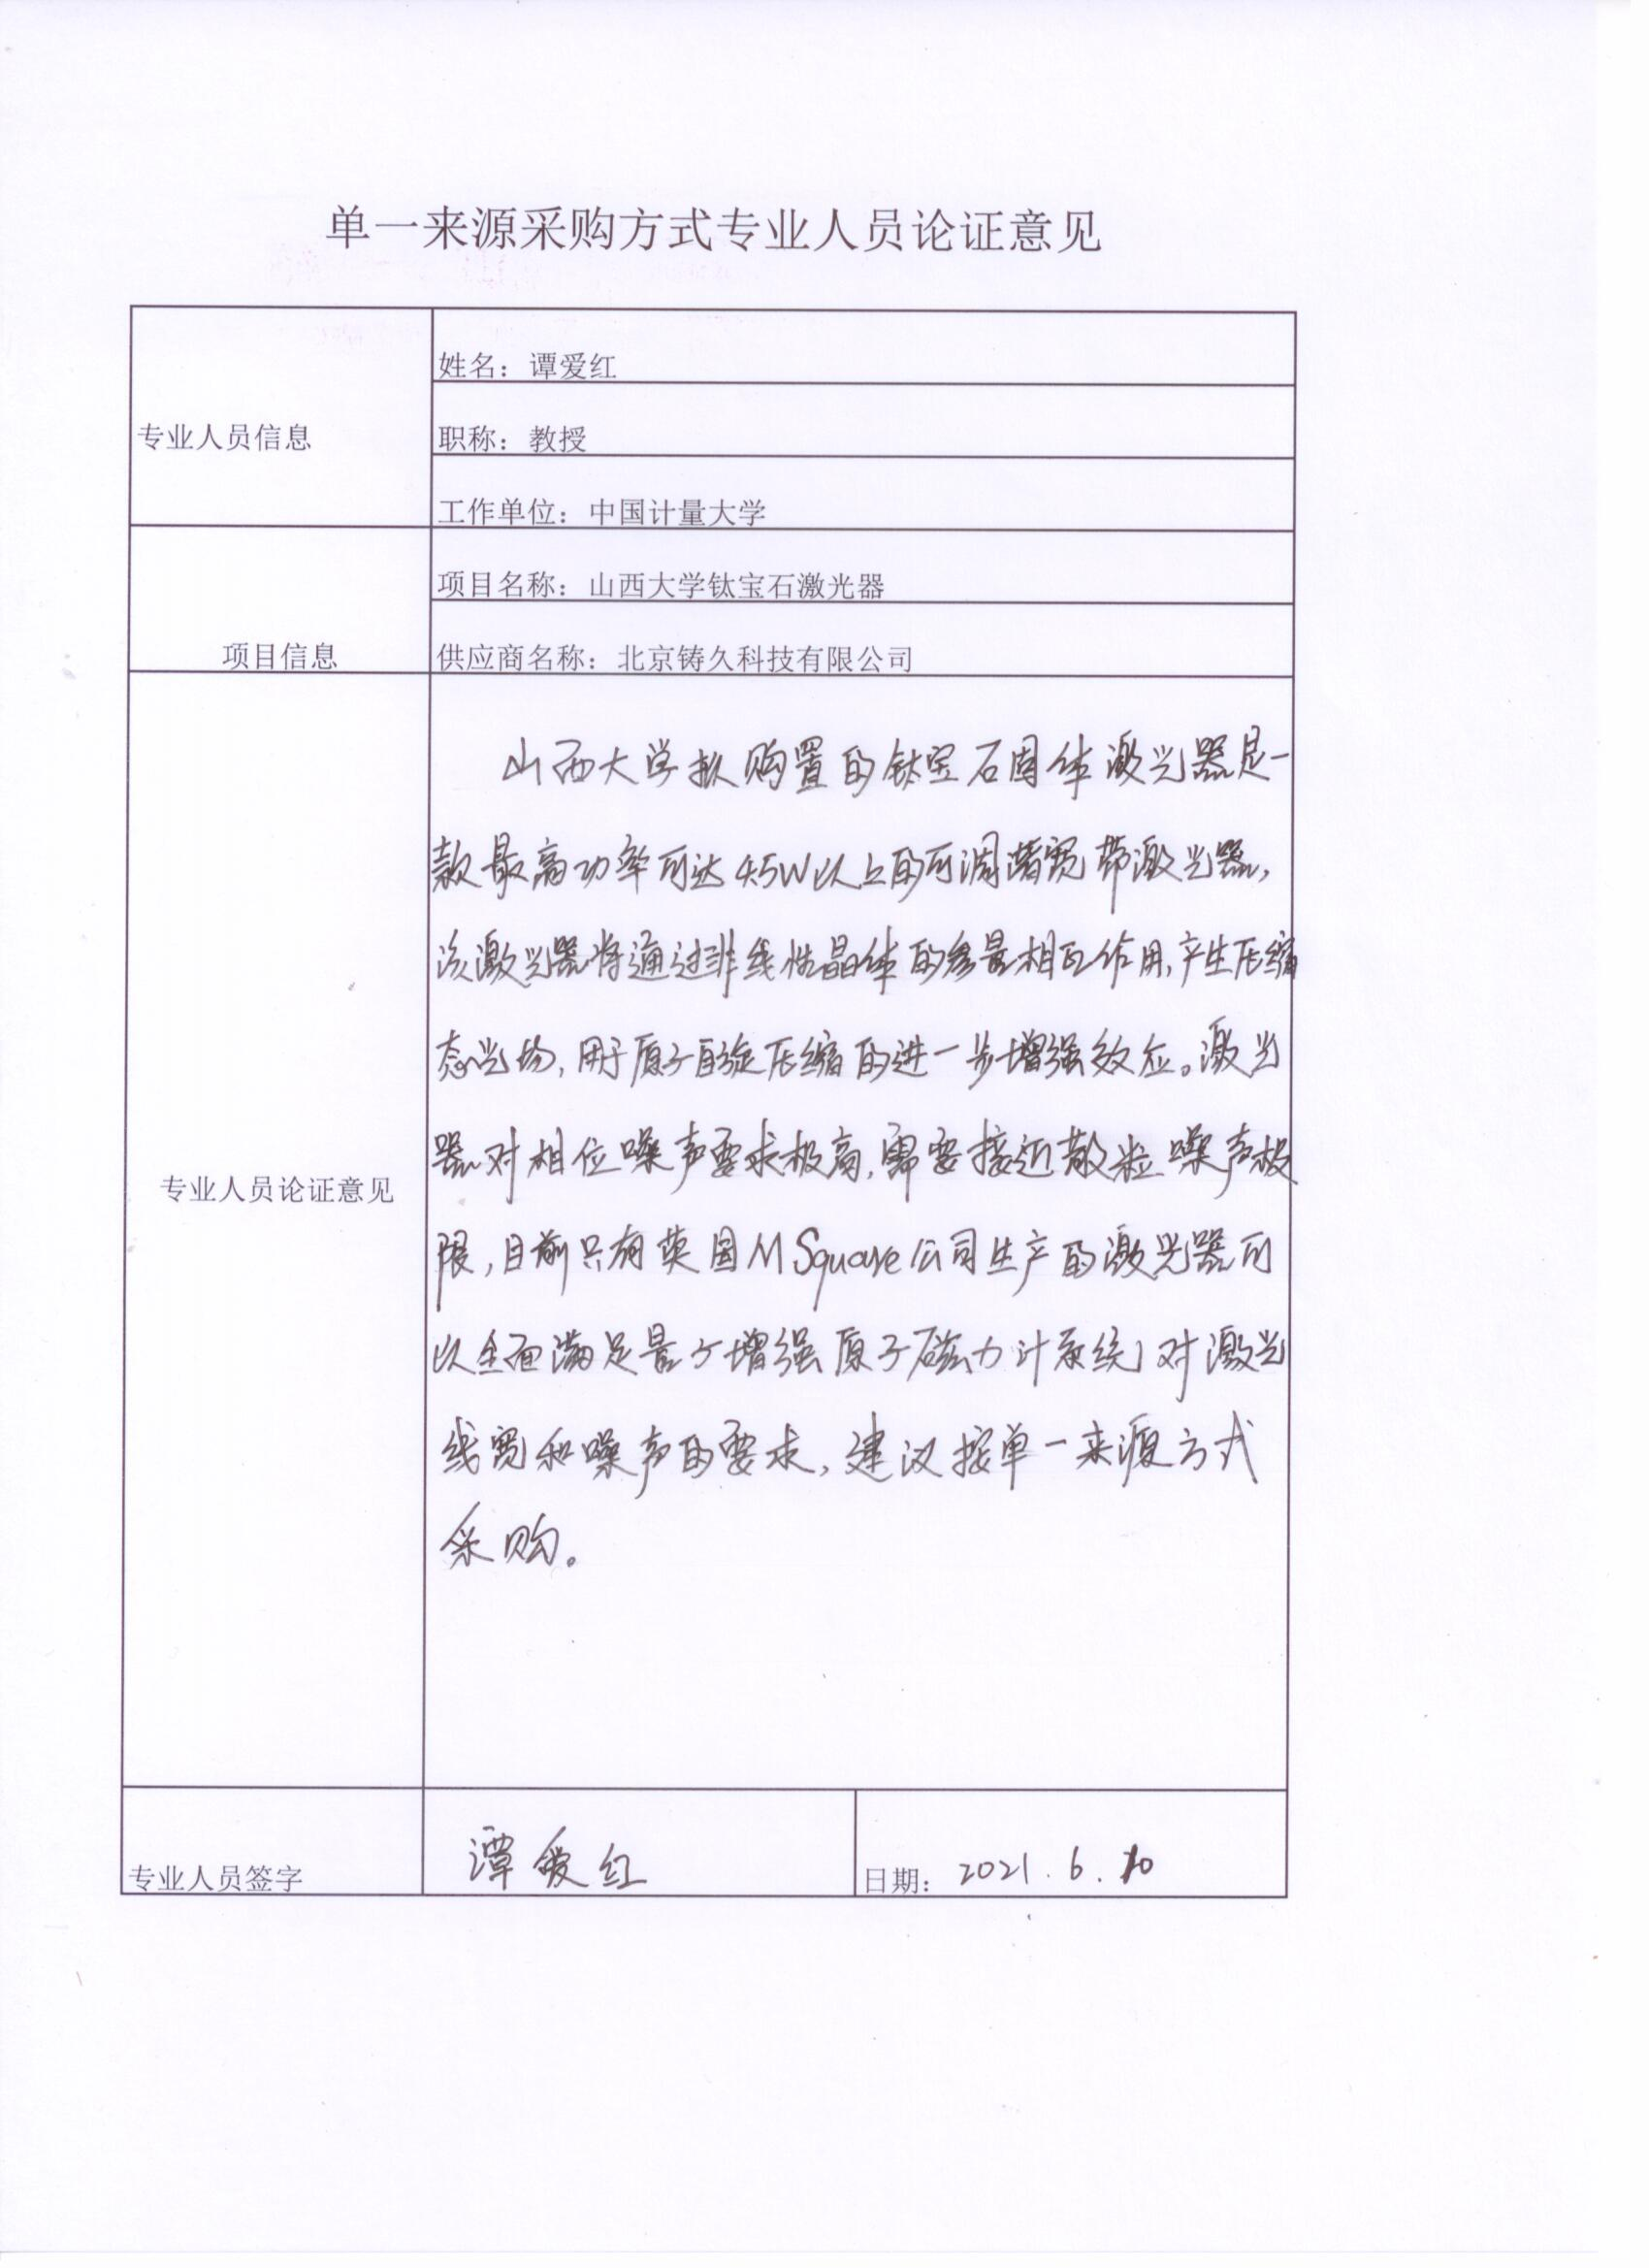 单一来源采购方式专业人员论证意见
专业人员信息
姓名：谭爱红
职称：教授
工作单位：中国计量大学
项目信息
项目名称：山西大学钛宝石激光器
供应商名称：北京铸久科技有限公司
专业人员论证意见
山西大学拟购置的钛宝石固体激光器是一
款最高功率可达4.5W以上的可调谐宽带激光器，
该激光器将通过非线性晶体的参量相互作用，产生压缩
态光场，用于原子自旋压缩的进一步增强效应。激光
器对相位噪声要求极高，需要接近散粒噪声极
限，目前只有英国M Square公司生产的激光器可
以全面满足量子增强原子磁力计系统对激光
线宽和噪声的要求，建议按单一来源方式
采购。
专业人员签字
谭爱红
日期：2021.6.10